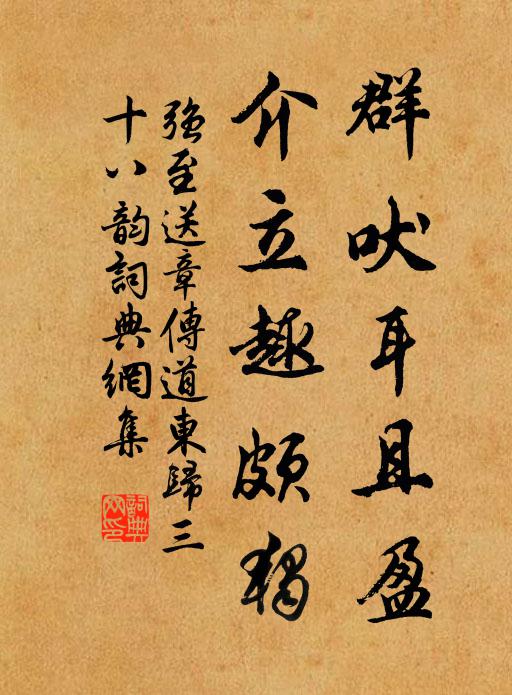 群吠耳且盈
介立趣頗獨
強至送章傳道東歸三
十八韵詞典網集
詞典
网印